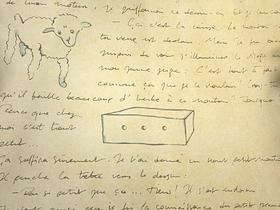 de mon moteur, je griffonnai ce dessin
Ça c'est la caisse. Le mouton
que tu veux est dedans. Mais je fus
surpris de voir s'illuminer le visage
mon jeune juge : C'est tout à fait
comme ça que je le voulais !
qu'il faille beaucoup d'herbe à ce mouton
Parce que chez
moi c'est tout
petit...
Ça suffira sûrement. Je t'ai donné un tout petit mouton
Il pencha la tête vers le dessin :
- Pas si petit que ça... Tiens ! Il s'est endormi
la connaissance du petit prince